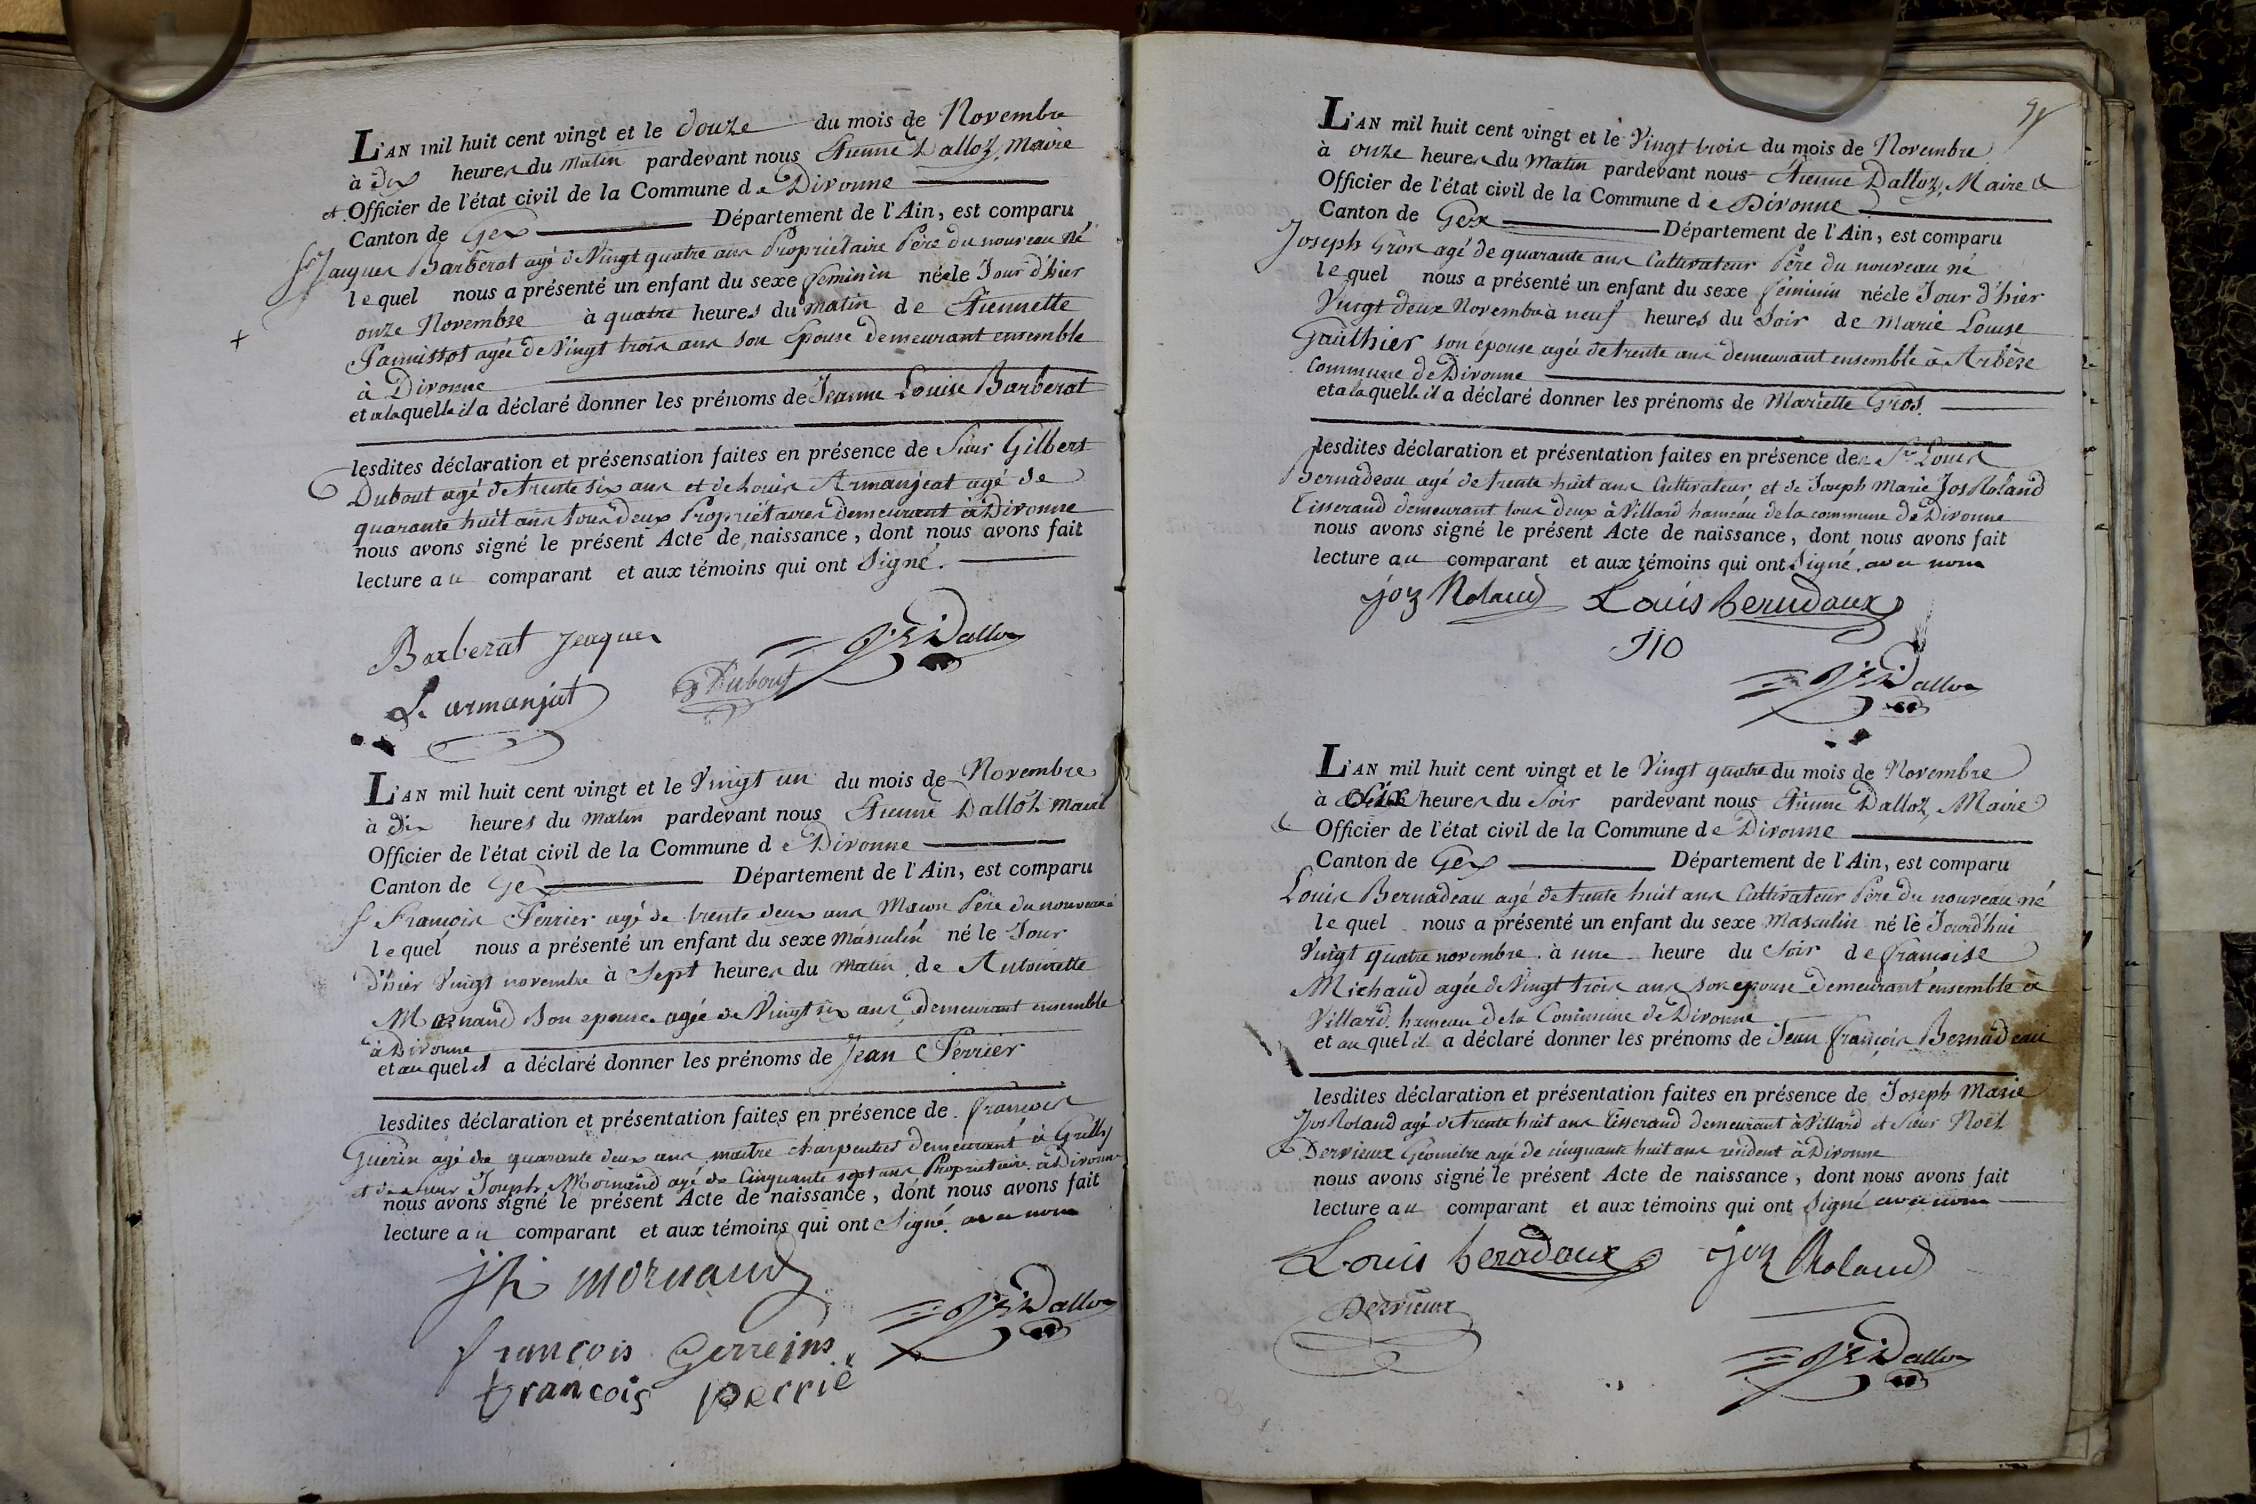 L'AN mil huit cent vingt et le douze du mois de Novembre
à dix heures du Matin pardevant nous Etienne Dalloz, Maire
et Officier de l'état civil de la Commune de Divonne
Canton de Gex Département de l'Ain, est comparu
Sr Jacques Barberat agé de Vingt quatre ans Propriétaire Père du nouveau né
lequel nous a présenté un enfant du sexe feminin née le Jour d'hier
onze Novembre à quatre heures du matin de Etiennette
agée de Vingt trois ans son Epouse demeurant ensemble
à Divonne
et a laquelle il a déclaré donner les prénoms de Jeanne Louise Barberat
lesdites déclaration et présensation faites en présence de Sieur Gilbert
Dubout agé de trente six ans et de Louis Armanjeat agé de
quarante huit ans tous deux Propriétaires demeurant à Divonne
nous avons signé le présent Acte de naissance, dont nous avons fait
lecture au comparant et aux témoins qui ont Signé.
Barberat Jeaques
Dalloz
Dubout
L. armanjat
L'AN mil huit cent vingt et le Vingt un du mois de Novembre
à dix heures du matin pardevant nous Etienne Dalloz Maire
Officier de l'état civil de la Commune de Divonne
Canton de Gex Département de l'Ain, est comparu
François Perrier agé de trente deux ans Maçon Père du nouveau né
lequel nous a présenté un enfant du sexe masculin né le Jour
d'hier Vingt novembre à Sept heures du Matin de Antoinette
Mornand Son epouse agée de Vingt six ans demeurant ensemble
à Divonne
et au quel il a déclaré donner les prénoms de Jean Perrier
lesdites déclaration et présentation faites en présence de François
Guerin agé de quarante deux ans maitre charpentier demeurant à Grilly
et de Sieur Joseph Mornand agé de Cinquante sept ans Propriétaire à Divonne
nous avons signé le présent Acte de naissance, dont nous avons fait
lecture au comparant et aux témoins qui ont Signé. avec nous
Jh mornand
Dalloz
françois Gerreins
françois perrié
L'AN mil huit cent vingt et le Vingt trois du mois de Novembre
à onze heures du Matin pardevant nous Etienne Dalloz, Maire &
Officier de l'état civil de la Commune de Divonne
Canton de Gex Département de l'Ain, est comparu
Joseph Gros agé de quarante ans Cultivateur Père du nouveau né
lequel nous a présenté un enfant du sexe feminin née le Jour d'hier
Vingt deux Novembre à neuf heures du Soir de Marie Louise
Gauthier son épouse agée de trente ans demeurant ensemble à Arbère
Commune de Divonne
et a laquelle il a déclaré donner les prénoms de Mariette Gros.
lesdites déclaration et présentation faites en présence de Sr Louis
Bernadeau agé de trente huit ans Cultivateur et de Joseph Marie Jos Roland
Tisserand demeurant tous deux à Villard hameau de la commune de Divonne
nous avons signé le présent Acte de naissance, dont nous avons fait
lecture au comparant et aux témoins qui ont Signé. avec nous
joz Roland Louis berndaux
Dalloz
L'AN mil huit cent vingt et le Vingt quatre du mois de Novembre
à Six heures du Soir pardevant nous Etienne Dalloz, Maire
& Officier de l'état civil de la Commune de Divonne
Canton de Gex Département de l'Ain, est comparu
Louis Bernadeau agé de trente huit ans Cultivateur Père du nouveau né
lequel nous a présenté un enfant du sexe Masculin né le Jourd'hui
Vingt quatre novembre à une heure du Soir de françoise
Michaud agée de Vingt trois ans son epouse demeurant ensemble à
Villard hameau de la Commune de Divonne
et au quel il a déclaré donner les prénoms de Jean françois Bernadeau
lesdites déclaration et présentation faites en présence de Joseph Marie
Jos Roland agé de trente huit ans Tisserand demeurant à Villard et Sieur Noël
Dervieux Géomètre agé de cinquante huit ans résident à Divonne
nous avons signé le présent Acte de naissance, dont nous avons fait
lecture au comparant et aux témoins qui ont Signé avec nous
Louis beradaux joz Roland
Dervieux
Dalloz